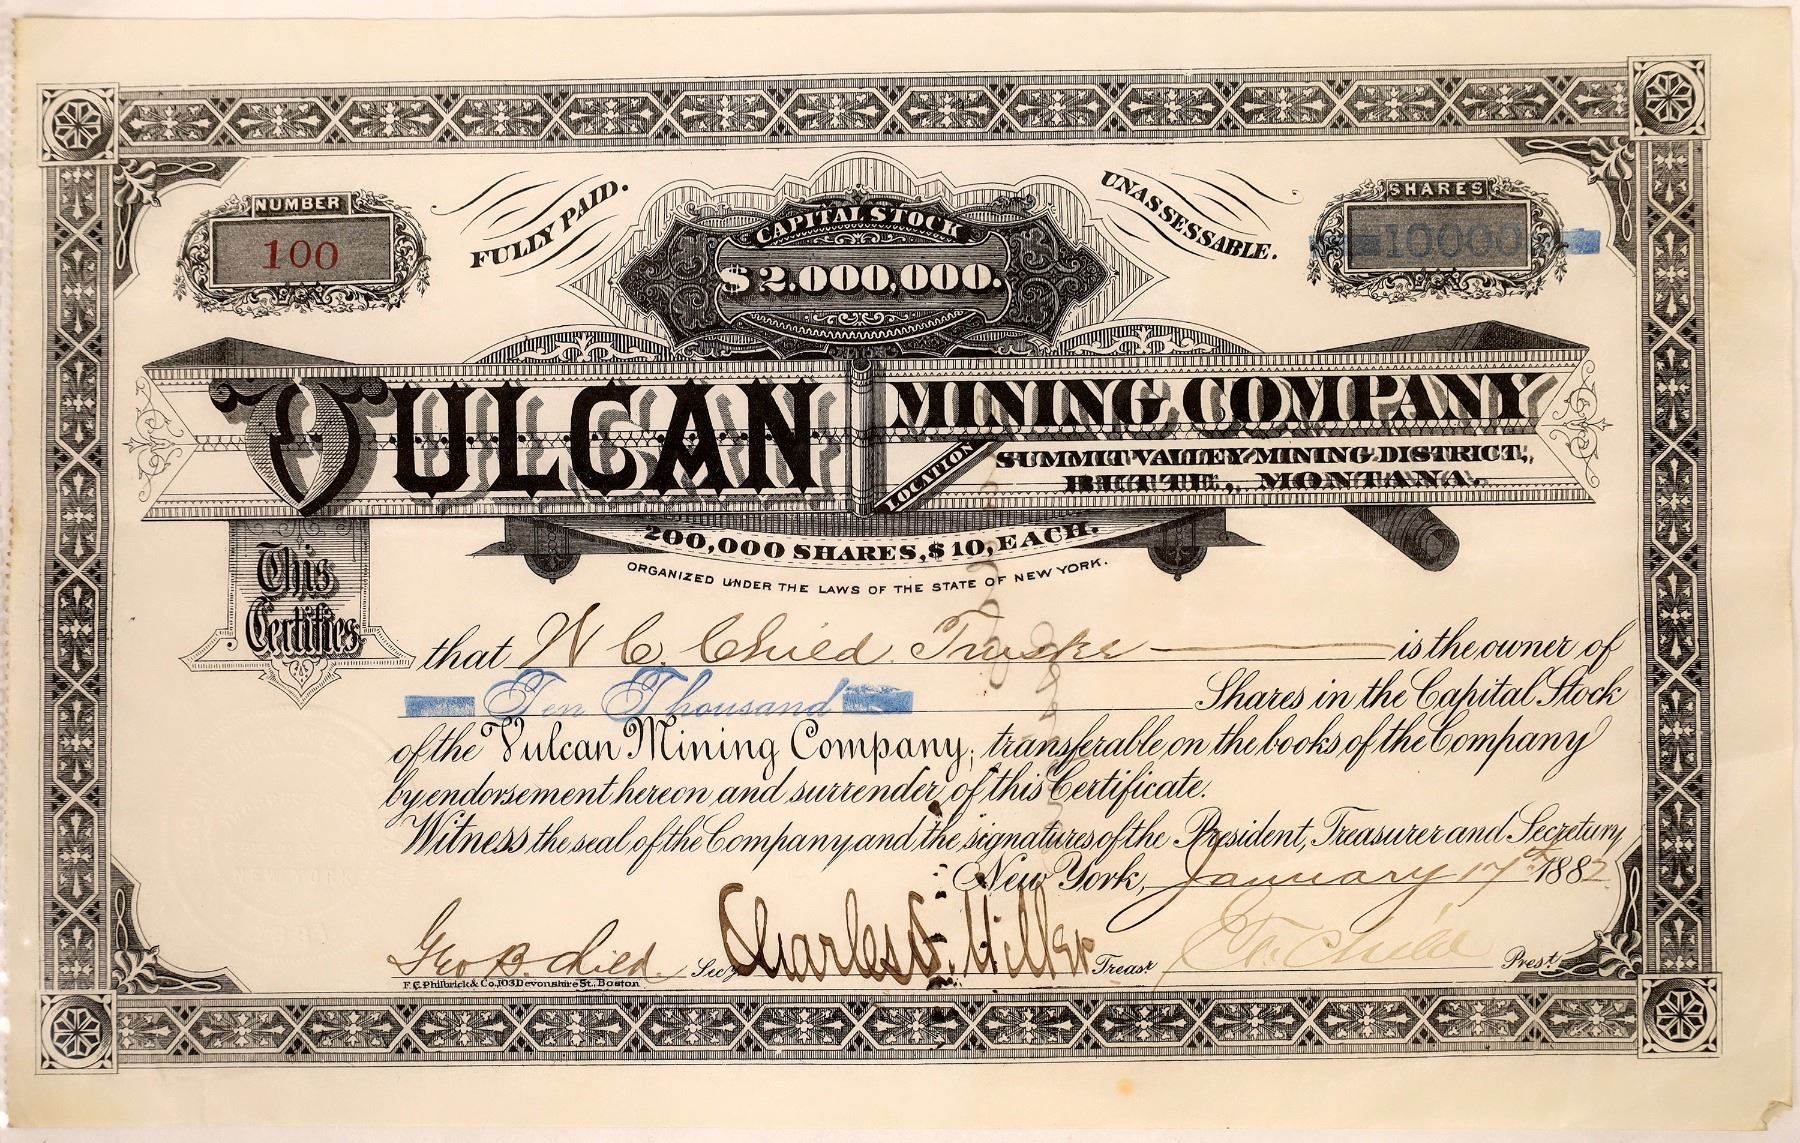 NUMBER
100
FULLY PAID.
CAPITAL STOCK
$2.000,000.
UNASSESSABLE.
SHARES
10000
VULCAN
MINING COMPANY
LOCATION
SUMMIT VALLEY MINING DISTRICT,
BETTE, MONTANA.
200,000 SHARES, $10, EACH.
ORGANIZED UNDER THE LAWS OF THE STATE OF NEW YORK.
This
Certifies
that W C. Child Trustee is the owner of
Ten Thousand Shares in the Capital Stock
of the Vulcan Mining Company; transferable on the books of the Company
by endorsement hereon and surrender of this Certificate.
Witness the seal of the Company and the signatures of the President, Treasurer and Secretary
New York, January 17th 1882
Geo B. Child. Secy Charles S. Miller Treasr Child Prest.
F.C. Philbrick & Co., 103 Devonshire St., Boston
NEW YORK